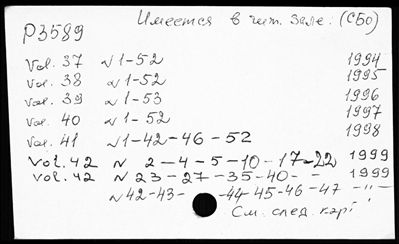 Имеется в чит. зале. (СБО)
P3589
Vol. 37 N 1-52 1994
Vol. 38 N 1-52 1995
Vol. 39 N 1-53 1996
Vol. 40 N 1-52 1997
Vol. 41 N 1-42-46-52 1998
Vol. 42 N 2-4-5-10-17-22 1999
Vol. 42 N 23-27-35-40- - 1999
N 42-43- -44-45-46-47 -"-
См. след. карт